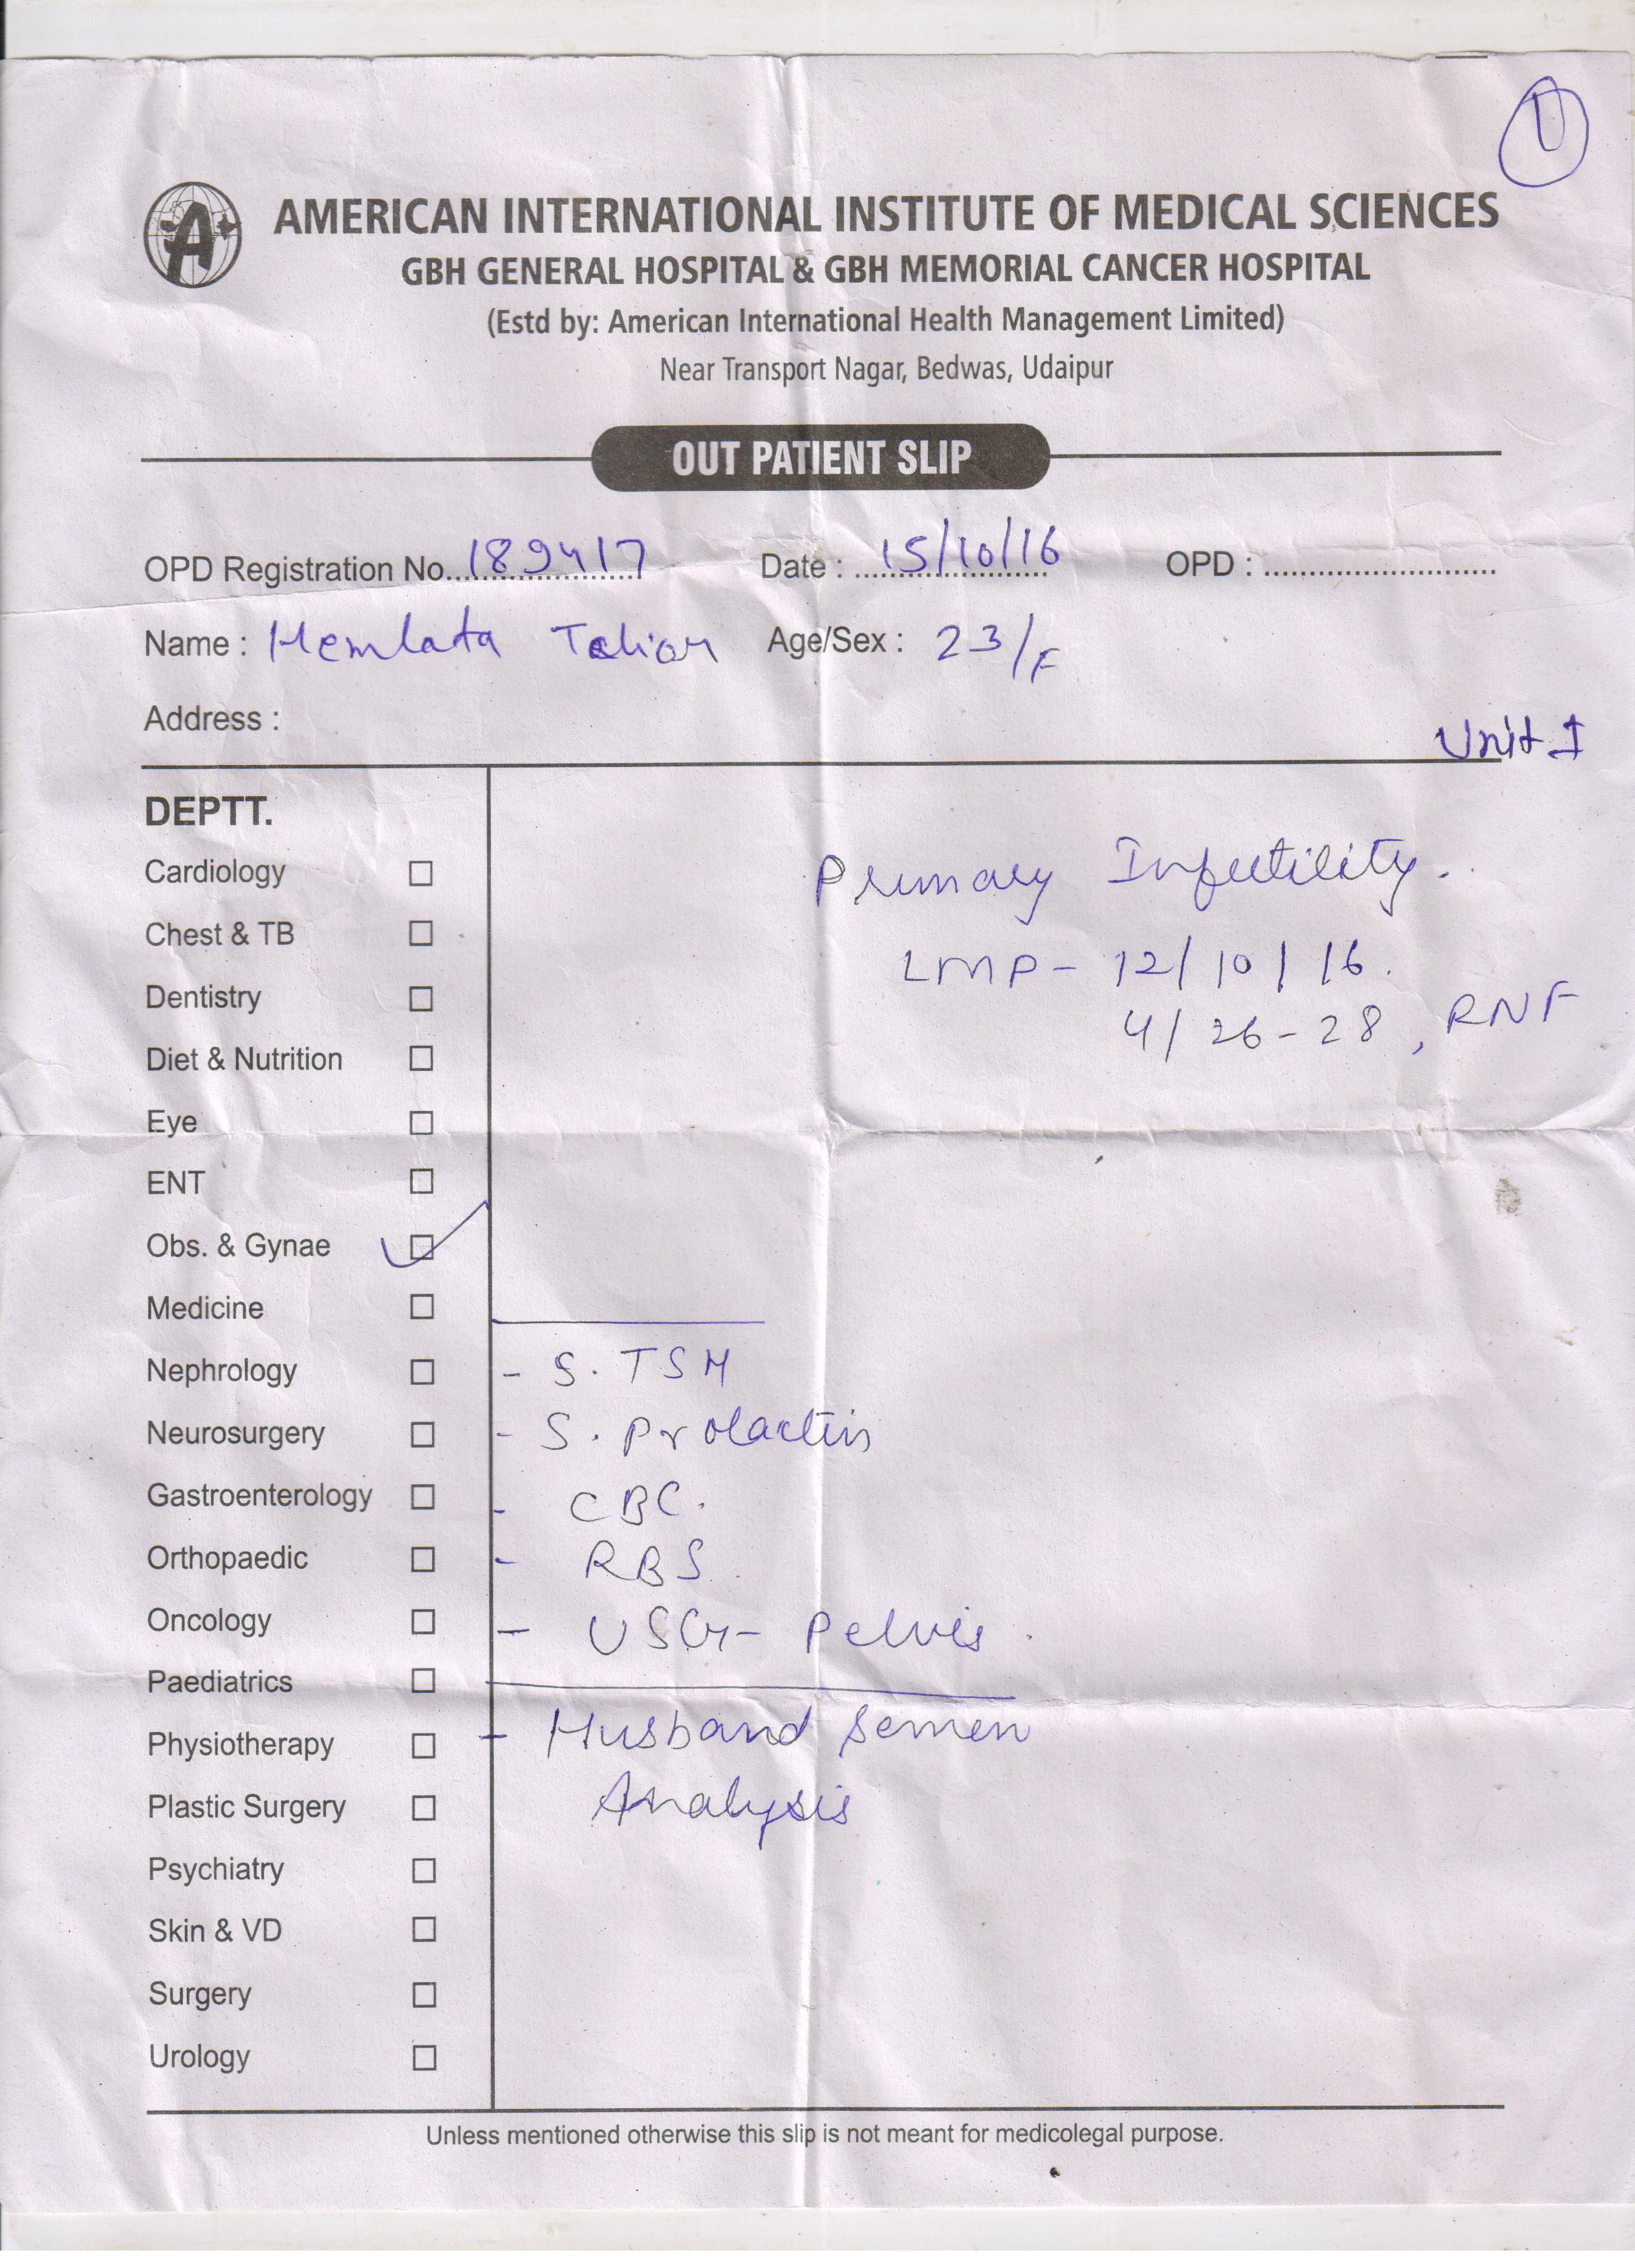 1
AMERICAN INTERNATIONAL INSTITUTE OF MEDICAL SCIENCES
GBH GENERAL HOSPITAL & GBH MEMORIAL CANCER HOSPITAL
(Estd by: American International Health Management Limited)
Near Transport Nagar, Bedwas, Udaipur
OUT PATIENT SLIP
OPD Registration No. 189417 Date : 15/10/16 OPD :
Name : Hemlata Age/Sex : 23/F
Address :
Unit I
DEPTT.
Cardiology
Chest & TB
Dentistry
Diet & Nutrition
Eye
ENT
Obs. & Gynae
Medicine
Nephrology
Neurosurgery
Gastroenterology
Orthopaedic
Oncology
Paediatrics
Physiotherapy
Plastic Surgery
Psychiatry
Skin & VD
Surgery
Urology
Primary Infertility.
LMP- 12/10/16.
4/26-28, RNF
- S. TSH
- S. Prolactin
- CBC.
- RBS
- USG- Pelvis.
- Husband Semen
Analysis
Unless mentioned otherwise this slip is not meant for medicolegal purpose.